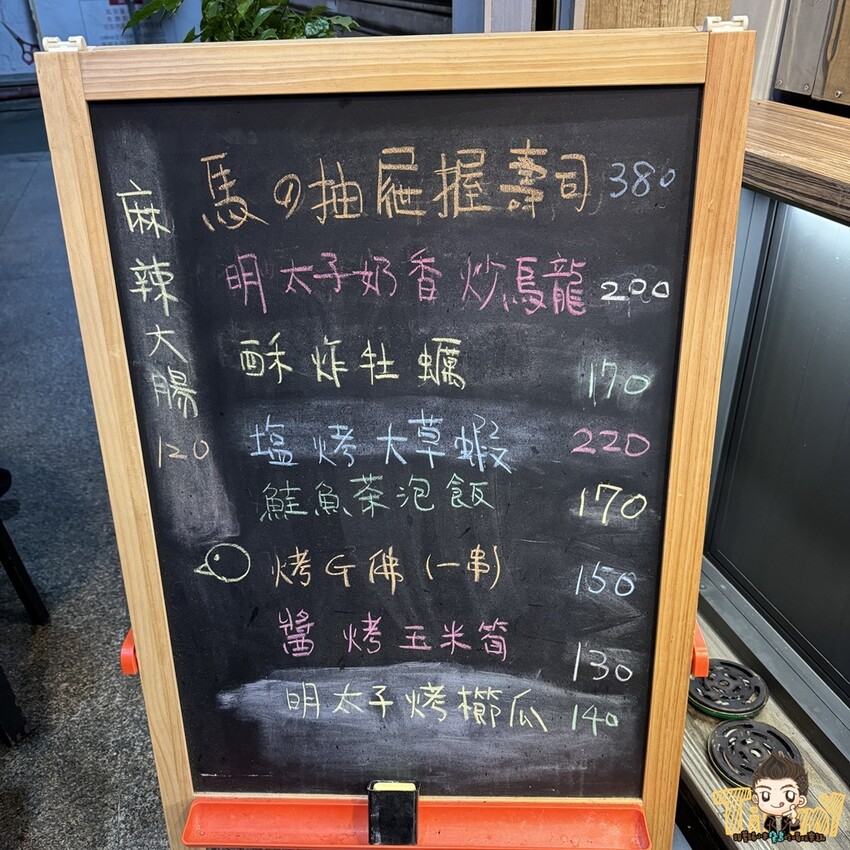 馬の抽屜握壽司 380
明太子奶香炒烏龍 200
酥炸牡蠣 170
塩烤大草蝦 220
鮭魚茶泡飯 170
烤G佛(一串) 150
醬烤玉米筍 130
明太子烤櫛瓜 140
麻辣大腸 120